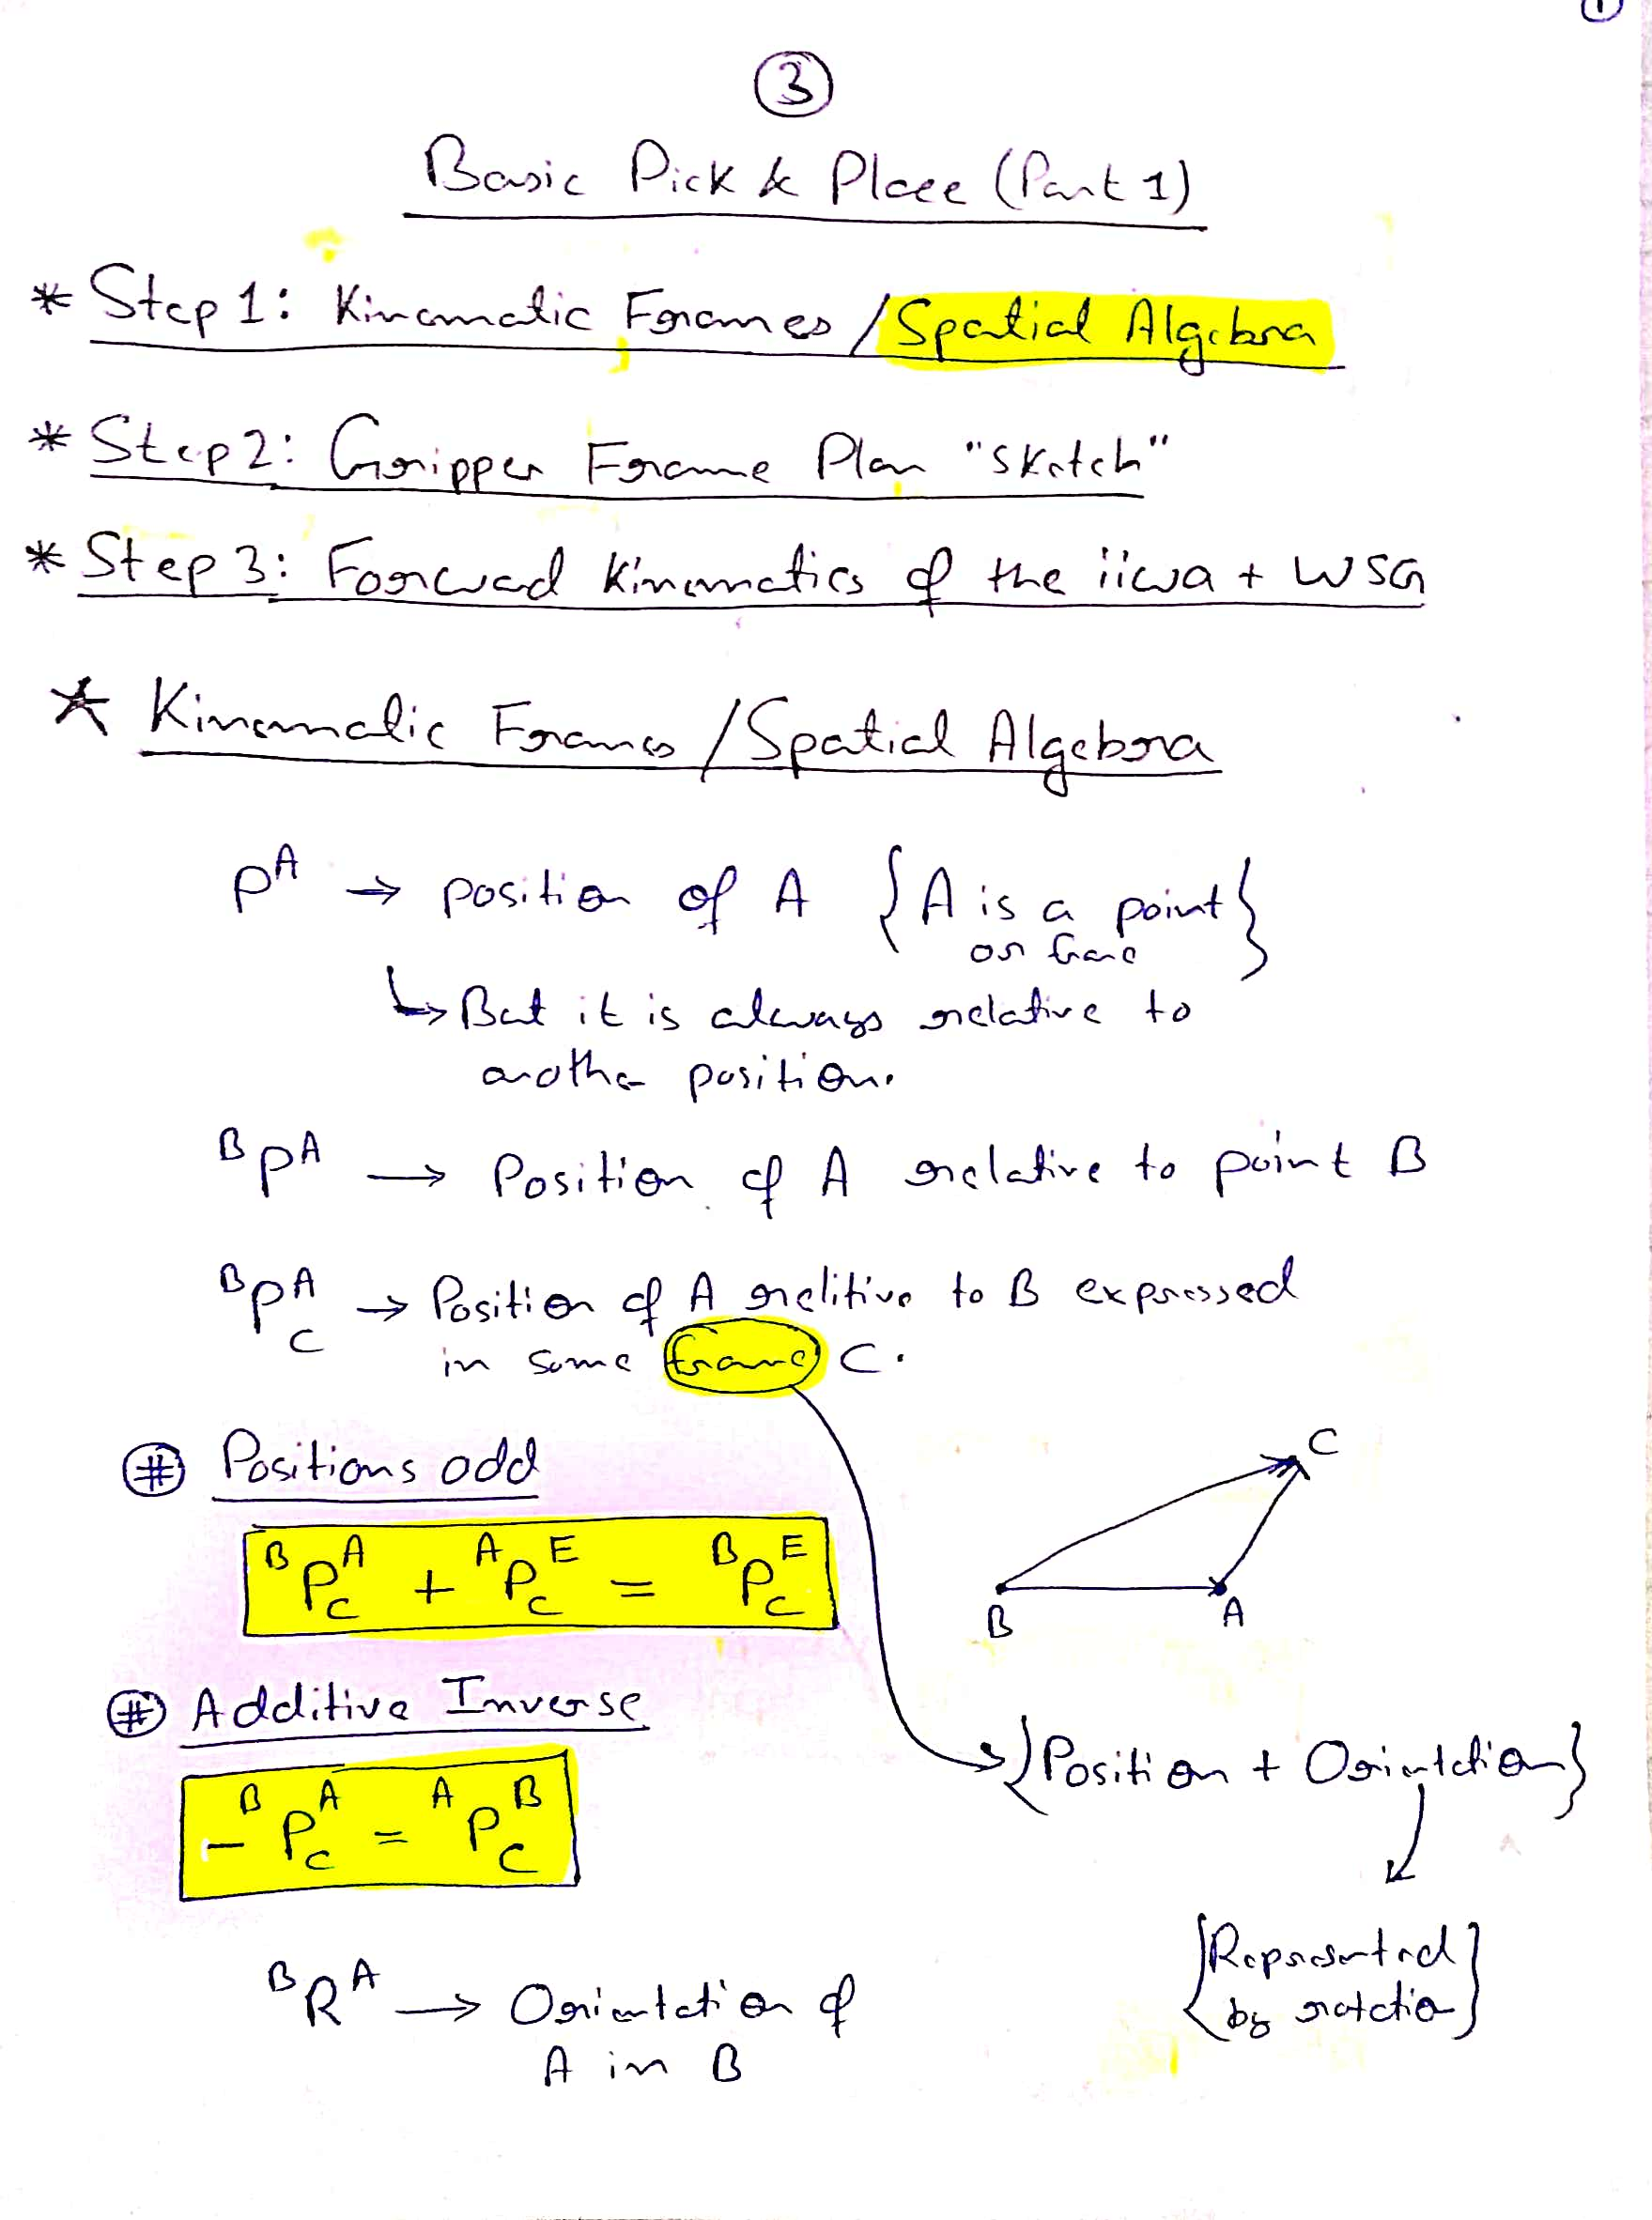 1
3
Basic Pick & Place (Part 1)
* Step 1: Kinematic Frames / Spatial Algebra
* Step 2: Gripper Frame Plan "sketch"
* Step 3: Forward Kinematics of the iiwa + WSG
* Kinematic Frames / Spatial Algebra
p^A → position of A {A is a point
or frame}
↳ But it is always relative to
another position.
^B p^A → Position of A relative to point B
^B p^A_C → Position of A relitive to B expressed
in some frame C.
# Positions add
^B P^A_C + ^A P^E_C = ^B P^E_C
C
B
A
# Additive Inverse
{Position + Orientation}
- ^B P^A_C = ^A P^B_C
{Represented
by rotation}
^B R^A → Orientation of
A in B